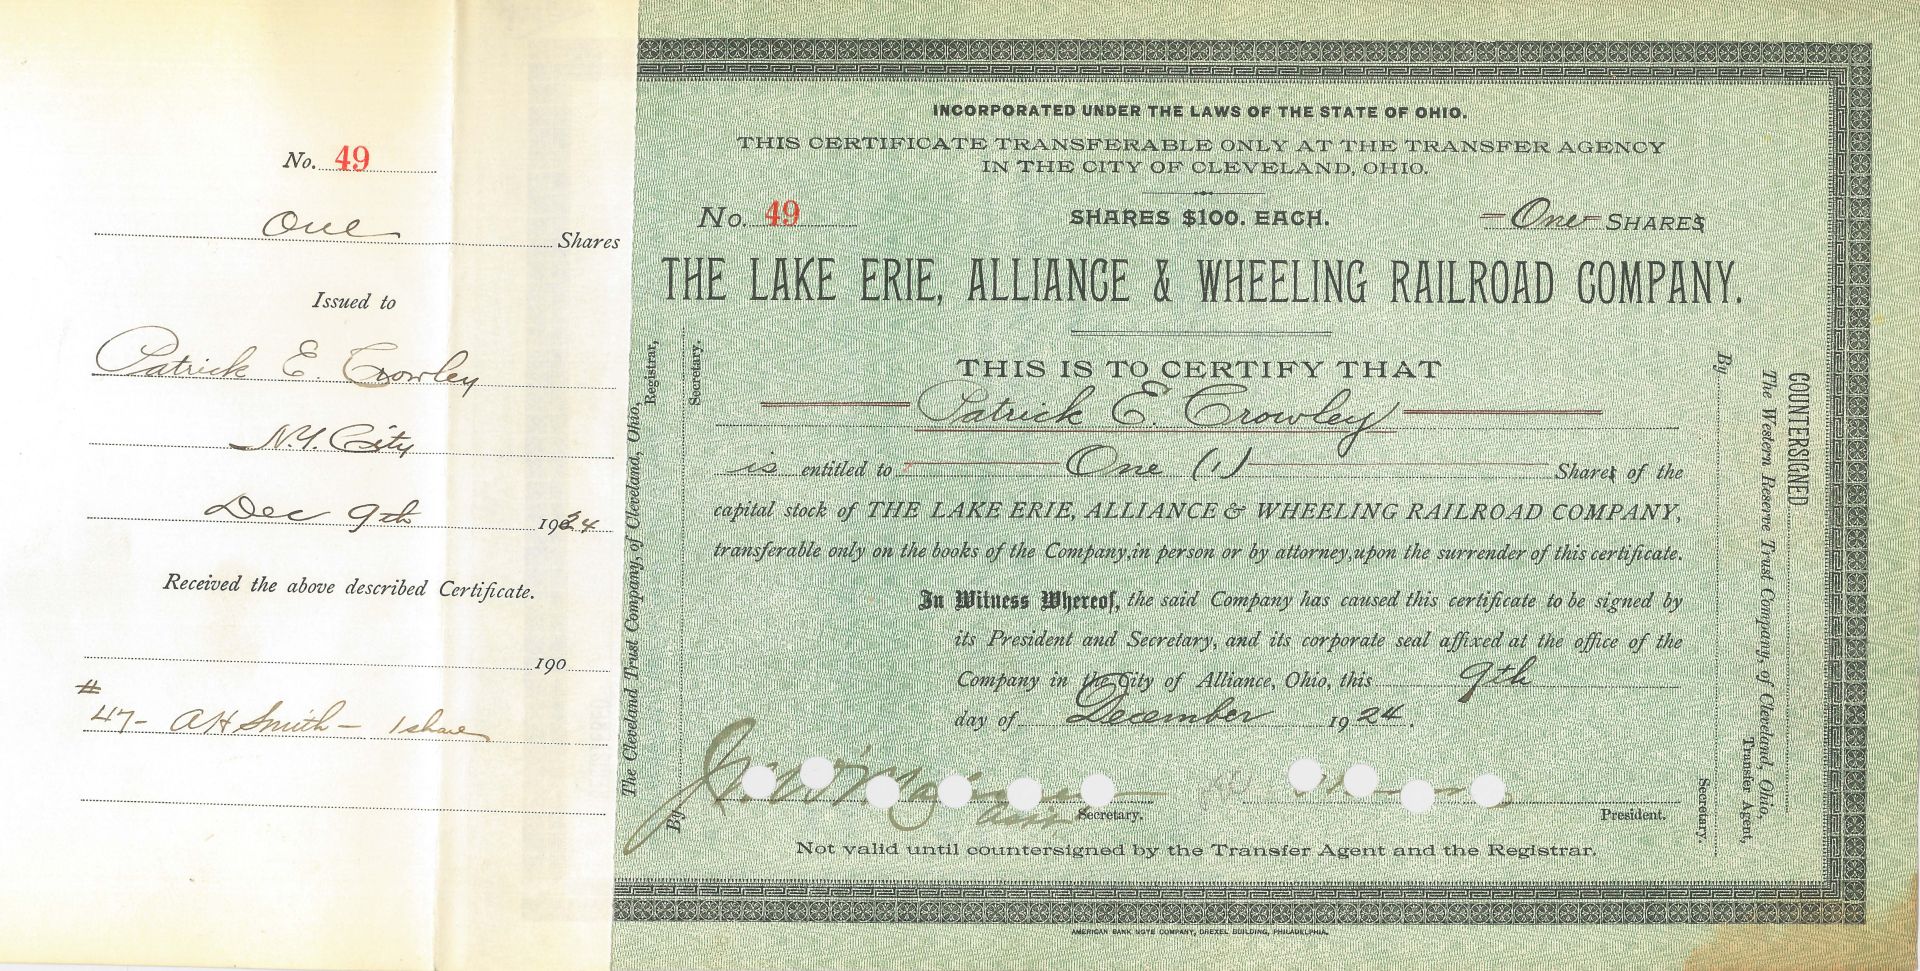 No. 49
One Shares
Issued to
Patrick E. Crowley
N.Y. City
Dec 9th 1924
Received the above described Certificate.
190
#
47- AH Smith- 1 share
INCORPORATED UNDER THE LAWS OF THE STATE OF OHIO.
THIS CERTIFICATE TRANSFERABLE ONLY AT THE TRANSFER AGENCY
IN THE CITY OF CLEVELAND, OHIO.
No. 49
SHARES $100. EACH.
-One- SHARES
THE LAKE ERIE, ALLIANCE & WHEELING RAILROAD COMPANY.
THIS IS TO CERTIFY THAT
Patrick E. Crowley
is entitled to One (1) Shares of the
capital stock of THE LAKE ERIE, ALLIANCE & WHEELING RAILROAD COMPANY,
transferable only on the books of the Company, in person or by attorney, upon the surrender of this certificate.
In Witness Whereof, the said Company has caused this certificate to be signed by
its President and Secretary, and its corporate seal affixed at the office of the
Company in the City of Alliance, Ohio, this 9th
day of December 1924.
Asst Secretary.
President.
Not valid until countersigned by the Transfer Agent and the Registrar.
AMERICAN BANK NOTE COMPANY, DREXEL BUILDING, PHILADELPHIA.
The Cleveland Trust Company, of Cleveland, Ohio,
Registrar,
By
Secretary.
COUNTERSIGNED
The Western Reserve Trust Company, of Cleveland, Ohio,
Transfer Agent,
By
Secretary.